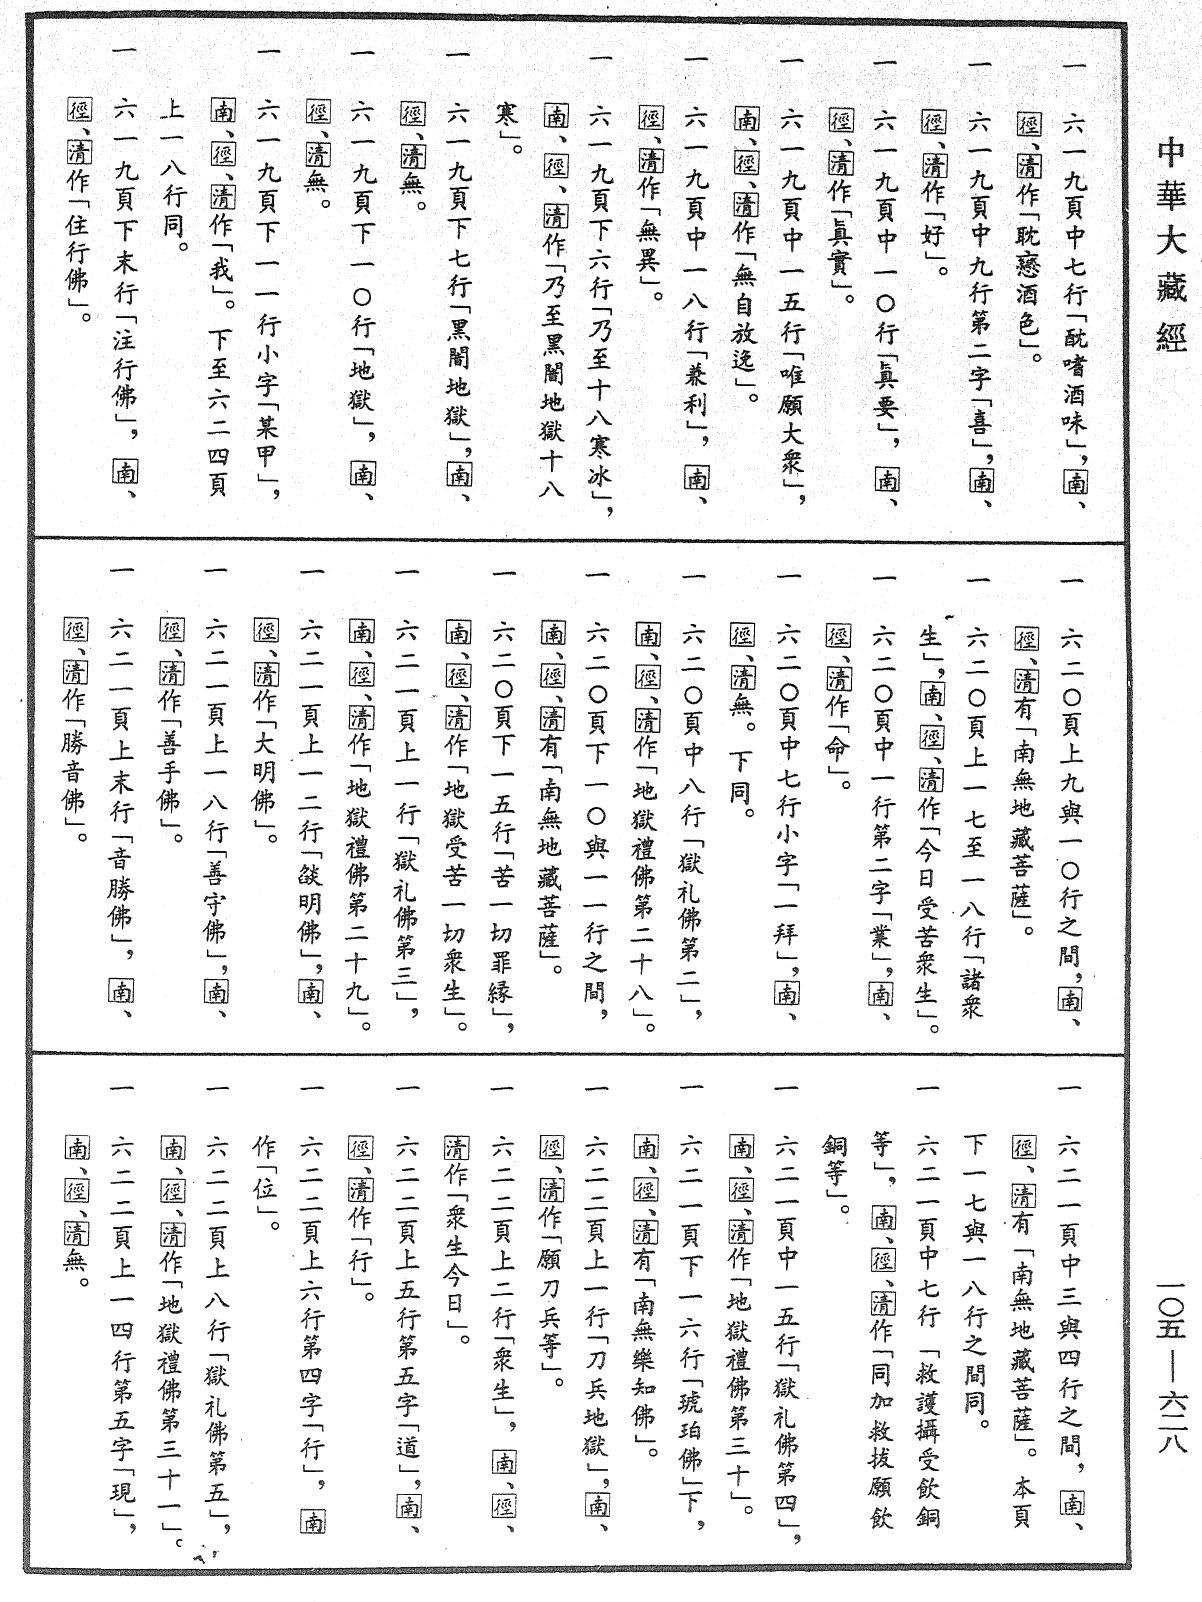 中華大藏經
一　六一九頁中七行「酖嗜酒味」，南、
徑、清作「耽戀酒色」。
一　六一九頁中九行第二字「喜」，南、
徑、清作「好」。
一　六一九頁中一〇行「眞要」，南、
徑、清作「眞實」。
一　六一九頁中一五行「唯願大衆」，
南、徑、清作「無自放逸」。
一　六一九頁中一八行「兼利」，南、
徑、清作「無異」。
一　六一九頁下六行「乃至十八寒冰」，
南、徑、清作「乃至黑闇地獄十八
寒」。
一　六一九頁下七行「黑闇地獄」，南、
徑、清無。
一　六一九頁下一〇行「地獄」，南、
徑、清無。
一　六一九頁下一一行小字「某甲」，
南、徑、清作「我」。下至六二四頁
上一八行同。
一　六一九頁下末行「注行佛」，南、
徑、清作「住行佛」。
一　六二〇頁上九與一〇行之間，南、
徑、清有「南無地藏菩薩」。
一　六二〇頁上一七至一八行「諸衆
生」，南、徑、清作「今日受苦衆生」。
一　六二〇頁中一行第二字「業」，南、
徑、清作「命」。
一　六二〇頁中七行小字「一拜」，南、
徑、清無。下同。
一　六二〇頁中八行「獄礼佛第二」，
南、徑、清作「地獄禮佛第二十八」。
一　六二〇頁下一〇與一一行之間，
南、徑、清有「南無地藏菩薩」。
一　六二〇頁下一五行「苦一切罪緣」，
南、徑、清作「地獄受苦一切衆生」。
一　六二一頁上一行「獄礼佛第三」，
南、徑、清作「地獄禮佛第二十九」。
一　六二一頁上一二行「燄明佛」，南、
徑、清作「大明佛」。
一　六二一頁上一八行「善守佛」，南、
徑、清作「善手佛」。
一　六二一頁上末行「音勝佛」，南、
徑、清作「勝音佛」。
一　六二一頁中三與四行之間，南、
徑、清有「南無地藏菩薩」。本頁
下一七與一八行之間同。
一　六二一頁中七行「救護攝受飲銅
等」，南、徑、清作「同加救拔願飲
銅等」。
一　六二一頁中一五行「獄礼佛第四」，
南、徑、清作「地獄禮佛第三十」。
一　六二一頁下一六行「琥珀佛」下，
南、徑、清有「南無樂知佛」。
一　六二二頁上一行「刀兵地獄」，南、
徑、清作「願刀兵等」。
一　六二二頁上二行「衆生」，南、徑、
清作「衆生今日」。
一　六二二頁上五行第五字「道」，南、
徑、清作「行」。
一　六二二頁上六行第四字「行」，南
作「位」。
一　六二二頁上八行「獄礼佛第五」，
南、徑、清作「地獄禮佛第三十一」。
一　六二二頁上一四行第五字「現」，
南、徑、清無。
一〇五—六二八